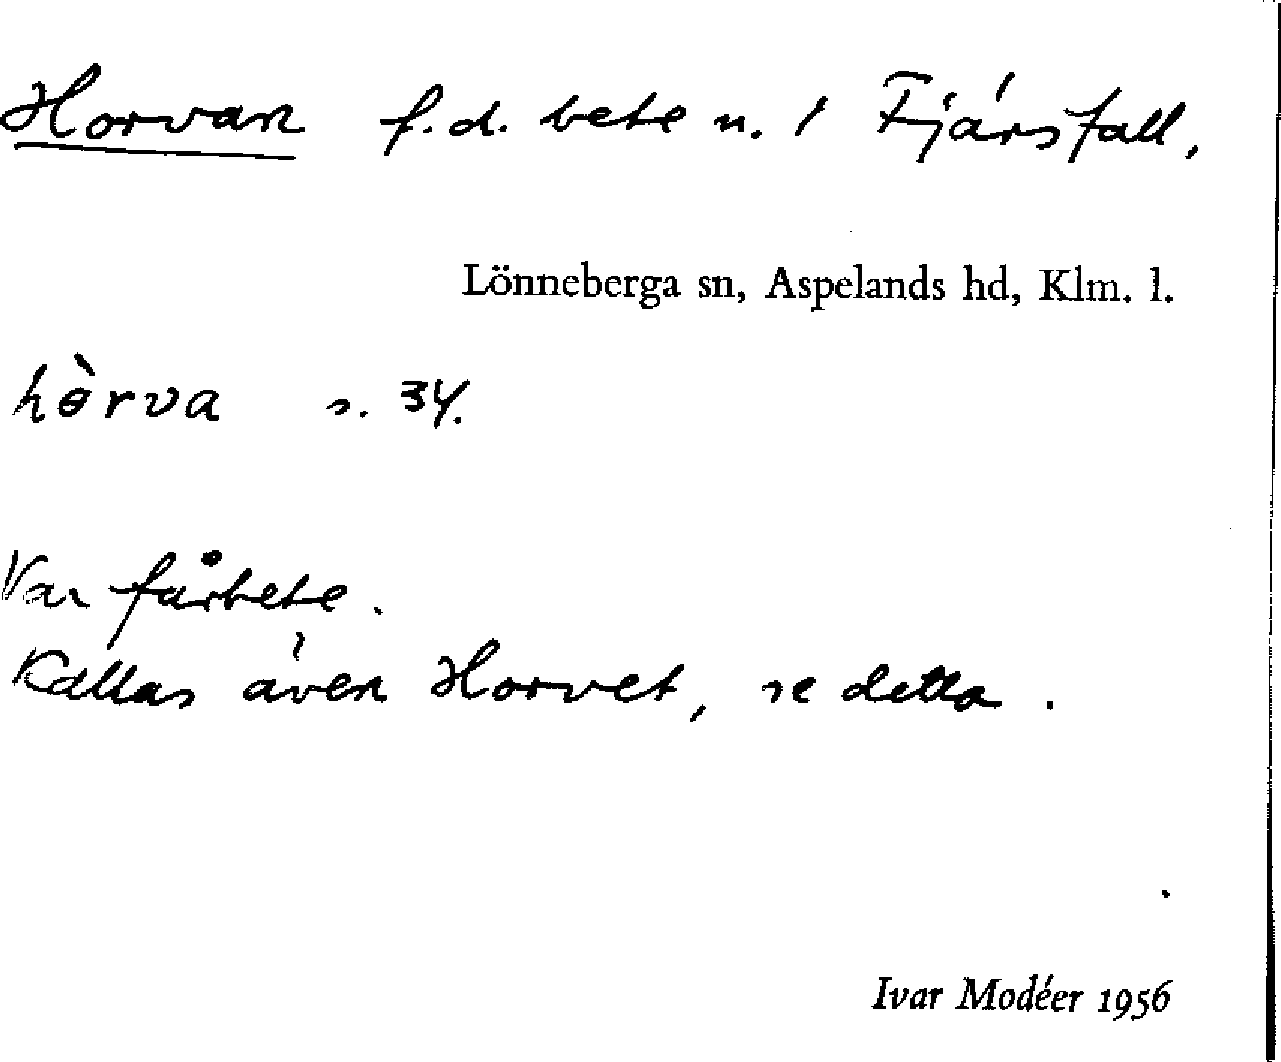 Horvan f.d. bete n. i Fjärsfall,
Lönneberga sn, Aspelands hd, Klm. l.
hò̱rva s. 34.
Var fårbete.
Kallas även Horvet, se detta.
Ivar Modéer 1956